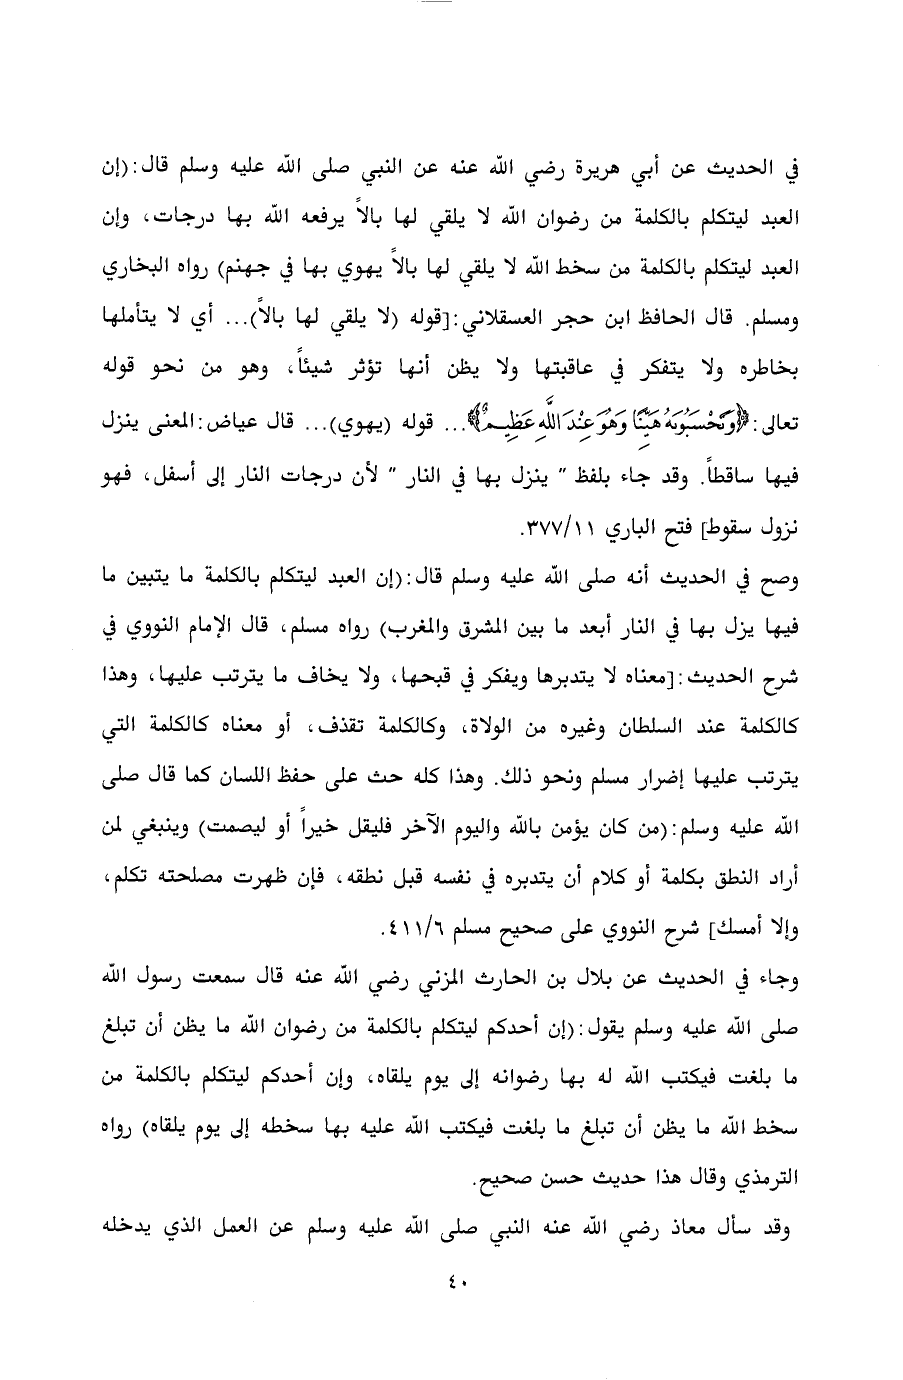 في الحديث عن أبي هريرة رضي الله عنه عن النبي صلى الله عليه وسلم قال:(إن
العبد ليتكلم بالكلمة من رضوان الله لا يلقي لها بالاً يرفعه الله بها درجات، وإن
العبد ليتكلم بالكلمة من سخط الله لا يلقي لها بالاً يهوي بها في جهنم) رواه البخاري
ومسلم. قال الحافظ ابن حجر العسقلاني:[قوله (لا يلقي لها بالاً)... أي لا يتأملها
بخاطره ولا يتفكر في عاقبتها ولا يظن أنها تؤثر شيئاً، وهو من نحو قوله
تعالى:﴿وَتَحْسَبُونَهُ هَيِّنًا وَهُوَ عِندَ اللَّهِ عَظِيمٌ﴾... قوله (يهوي)... قال عياض:المعنى ينزل
فيها ساقطاً. وقد جاء بلفظ " ينزل بها في النار " لأن درجات النار إلى أسفل، فهو
نزول سقوط] فتح الباري ٣٧٧/١١.
وصح في الحديث أنه صلى الله عليه وسلم قال:(إن العبد ليتكلم بالكلمة ما يتبين ما
فيها يزل بها في النار أبعد ما بين المشرق والمغرب) رواه مسلم، قال الإمام النووي في
شرح الحديث:[معناه لا يتدبرها ويفكر في قبحها، ولا يخاف ما يترتب عليها، وهذا
كالكلمة عند السلطان وغيره من الولاة، وكالكلمة تقذف، أو معناه كالكلمة التي
يترتب عليها إضرار مسلم ونحو ذلك. وهذا كله حث على حفظ اللسان كما قال صلى
الله عليه وسلم:(من كان يؤمن بالله واليوم الآخر فليقل خيراً أو ليصمت) وينبغي لمن
أراد النطق بكلمة أو كلام أن يتدبره في نفسه قبل نطقه، فإن ظهرت مصلحته تكلم،
وإلا أمسك] شرح النووي على صحيح مسلم ٤١١/٦.
وجاء في الحديث عن بلال بن الحارث المزني رضي الله عنه قال سمعت رسول الله
صلى الله عليه وسلم يقول:(إن أحدكم ليتكلم بالكلمة من رضوان الله ما يظن أن تبلغ
ما بلغت فيكتب الله له بها رضوانه إلى يوم يلقاه، وإن أحدكم ليتكلم بالكلمة من
سخط الله ما يظن أن تبلغ ما بلغت فيكتب الله عليه بها سخطه إلى يوم يلقاه) رواه
الترمذي وقال هذا حديث حسن صحيح.
وقد سأل معاذ رضي الله عنه النبي صلى الله عليه وسلم عن العمل الذي يدخله
٤٠